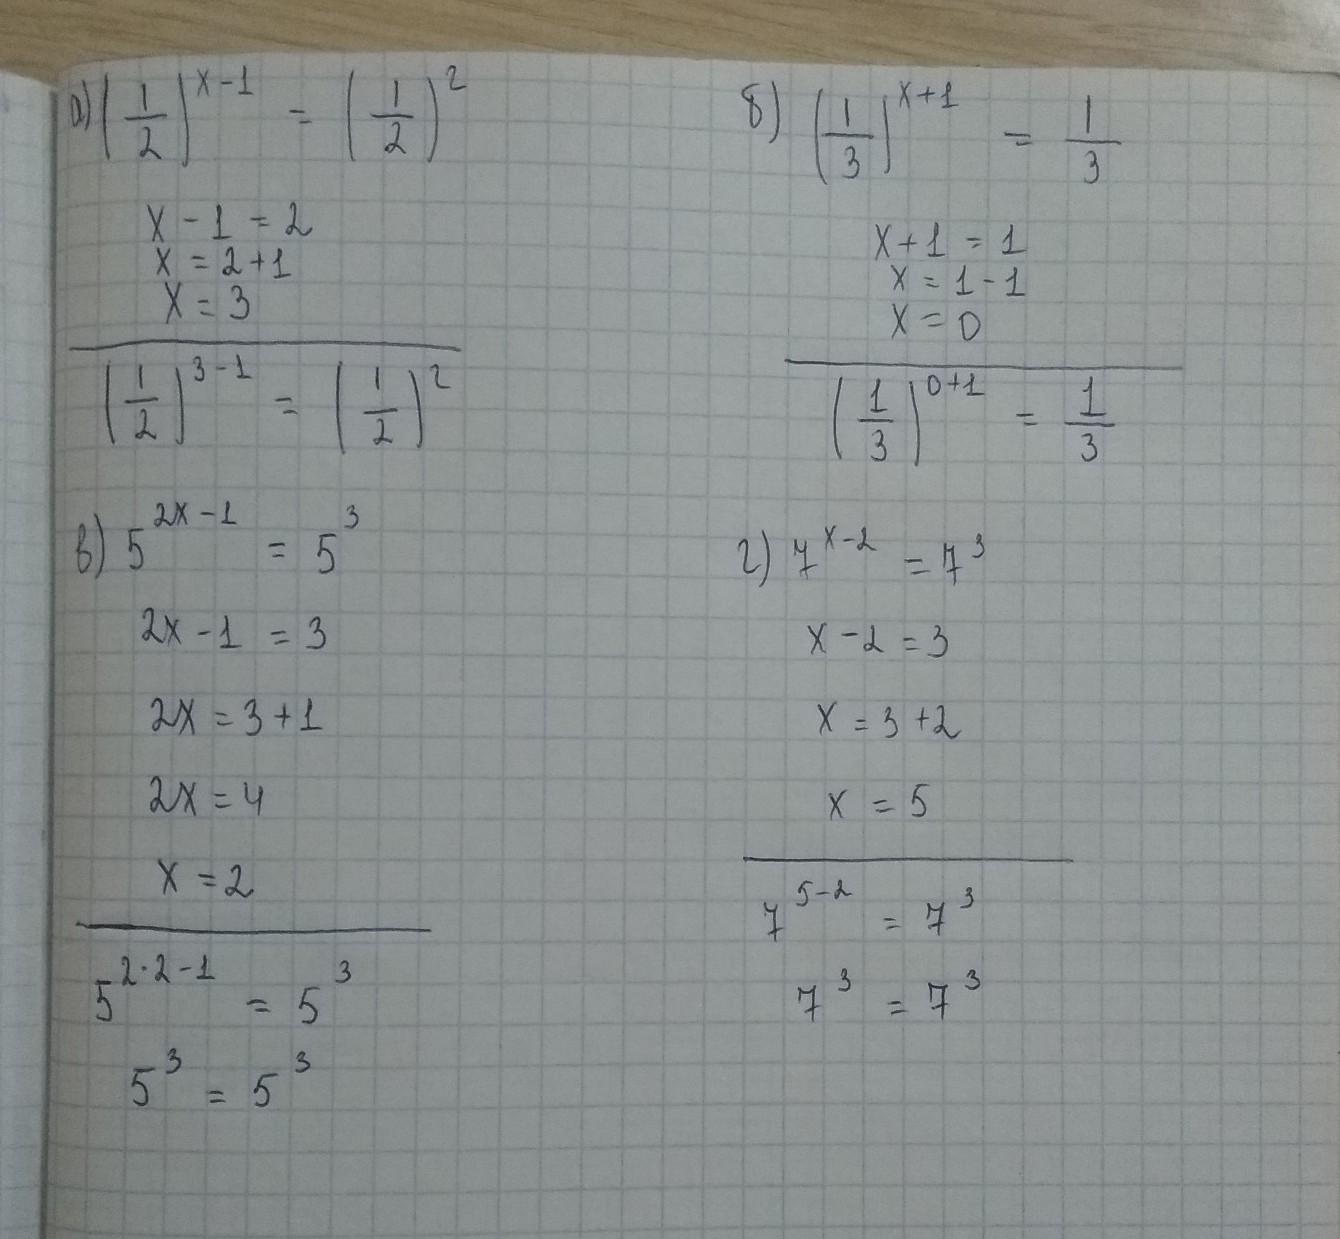 а) (1/2)^(x-1) = (1/2)^2
x - 1 = 2
x = 2+1
x = 3
(1/2)^(3-1) = (1/2)^2
б) (1/3)^(x+1) = 1/3
x+1 = 1
x = 1-1
x = 0
(1/3)^(0+1) = 1/3
в) 5^(2x-1) = 5^3
2x - 1 = 3
2x = 3+1
2x = 4
x = 2
5^(2·2-1) = 5^3
5^3 = 5^3
г) 7^(x-2) = 7^3
x - 2 = 3
x = 3+2
x = 5
7^(5-2) = 7^3
7^3 = 7^3